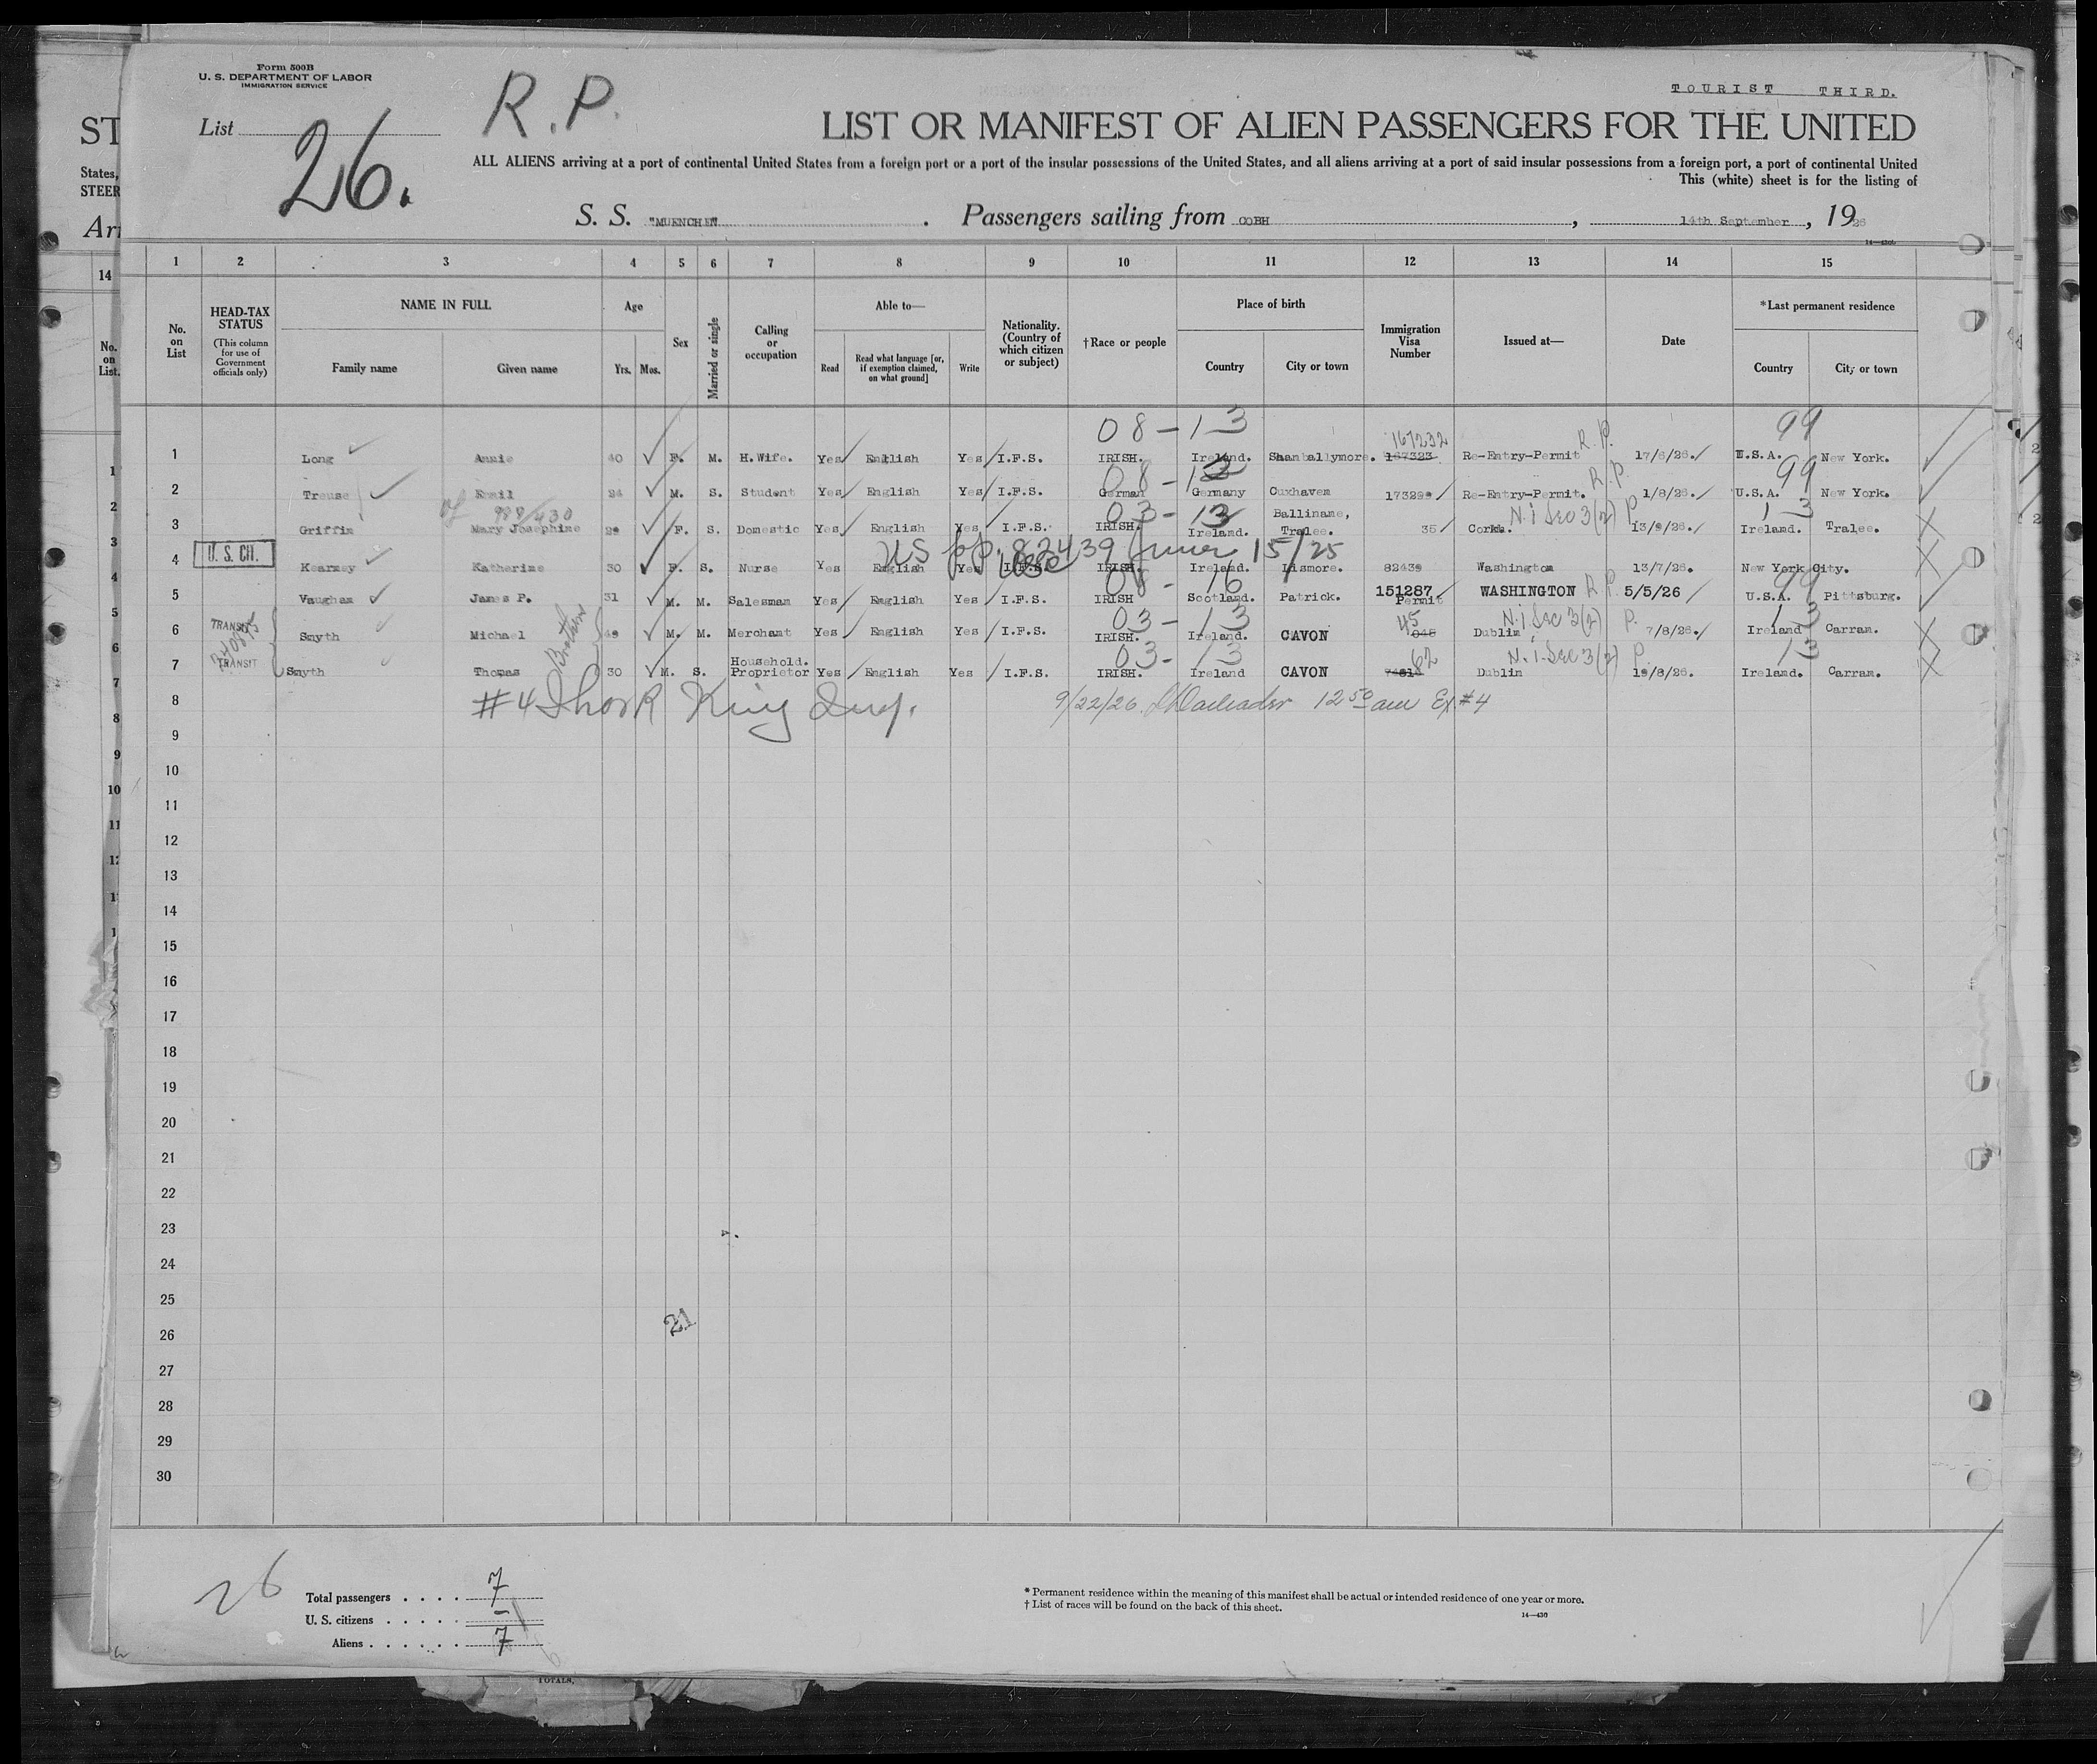 Form 500B
U. S. DEPARTMENT OF LABOR
IMMIGRATION SERVICE
R.P.
TOURIST THIRD.
List 26.
LIST OR MANIFEST OF ALIEN PASSENGERS FOR THE UNITED
ALL ALIENS arriving at a port of continental United States from a foreign port or a port of the insular possessions of the United States, and all aliens arriving at a port of said insular possessions from a foreign port, a port of continental United
This (white) sheet is for the listing of
S. S. "MUENCHEN" . Passengers sailing from COBH , 14th September , 1926
14—430
ST
States,
STEER
Arr
1 2 3 4 5 6 7 8 9 10 11 12 13 14 15
No. on List
HEAD-TAX STATUS
(This column for use of Government officials only)
NAME IN FULL
Family name Given name
Age
Yrs. Mos.
Sex
Married or single
Calling or occupation
Able to—
Read
Read what language [or, if exemption claimed, on what ground]
Write
Nationality. (Country of which citizen or subject)
†Race or people
Place of birth
Country City or town
Immigration Visa Number
Issued at—
Date
*Last permanent residence
Country City or town
08-13 167232 R.P. 99
1 Long Annie 40 F. M. H.Wife. Yes English Yes I.F.S. IRISH. Ireland. Shanballymore. 167323 Re-Entry-Permit 17/6/26. U.S.A. New York.
08-13 R.P. 99
2 Treuse Emil 24 M. S. Student Yes English Yes I.F.S. German Germany Cuxhaven 17329 Re-Entry-Permit. 1/8/26. U.S.A. New York.
988/430 03-13 N.i Sec 3(2) P 13
3 Griffin Mary Josephine 29 F. S. Domestic Yes English Yes I.F.S. IRISH. Ireland. Balliname, Tralee. 35 Cork. 13/9/26. Ireland. Tralee.
US pp. 82439 15/25
4 U. S. CIT. Kearney Katherine 30 F. S. Nurse Yes English Yes I.F.S. IRISH. Ireland. Lismore. 82439 Washington 13/7/26. New York City.
08-16 99
5 Vaughan James P. 31 M. M. Salesman Yes English Yes I.F.S. IRISH Scotland. Patrick. 151287 Permit WASHINGTON R.P. 5/5/26 U.S.A. Pittsburg.
03-13 45 N.i Sec 3(2) P. 13
6 TRANSIT Smyth Michael Brothers 49 M. M. Merchant Yes English Yes I.F.S. IRISH. Ireland. CAVON 1045 Dublin 7/8/26. Ireland Carran.
03-13 62 N.i.Sec 3(2) P 13
7 TRANSIT Smyth Thomas 30 M. S. Household. Proprietor Yes English Yes I.F.S. IRISH. Ireland CAVON Dublin 19/8/26. Ireland. Carran.
8 #4 King Insp. 9/22/26. 12 50 am Ex #4
9
10
11
12
13
14
15
16
17
18
19
20
21
22
23
24
25
21
26
27
28
29
30
26
Total passengers . . . . 7
U. S. citizens . . . . . –
Aliens . . . . . . 7
* Permanent residence within the meaning of this manifest shall be actual or intended residence of one year or more.
† List of races will be found on the back of this sheet.
14—430
TOTALS,